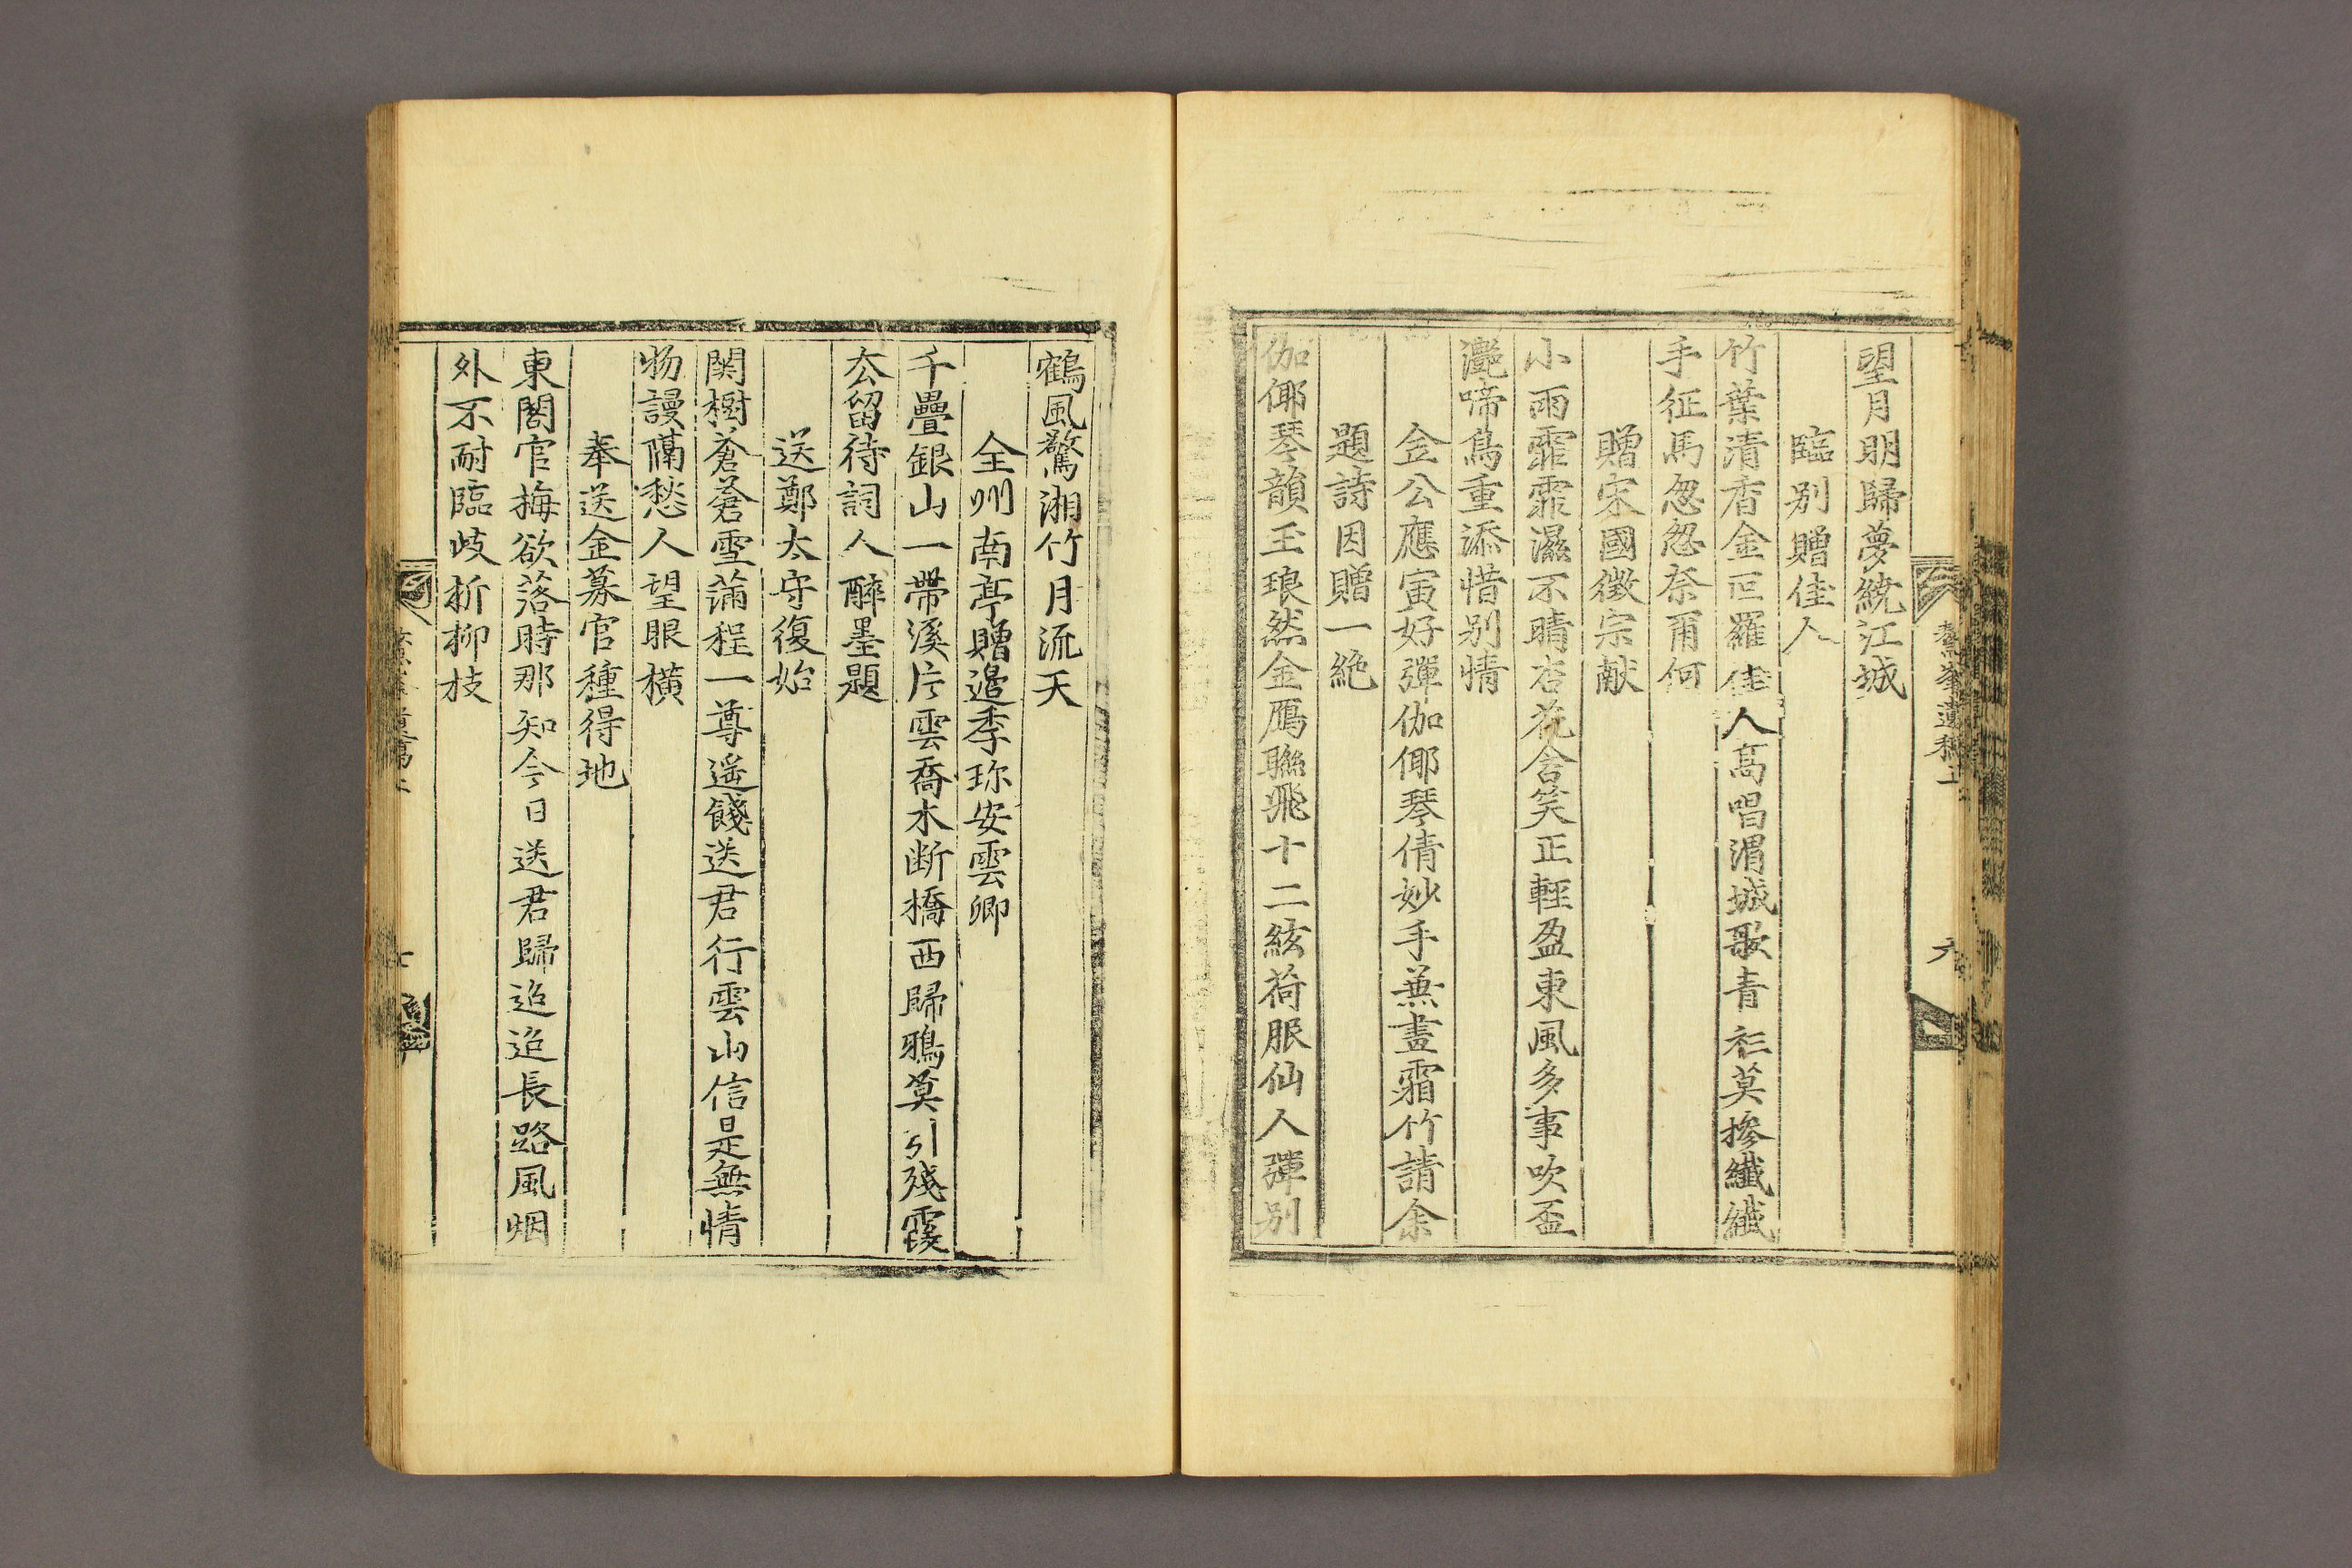 望月明歸夢繞江城
臨别贈佳人
竹葉清香金叵羅佳人高唱渭城歌青衫莫摻纖纖
手征馬怱怱奈爾何
贈宋國徵宗献
小雨霏霏濕不晴杏花含笑正輕盈東風多事吹盃
灔啼鳥重添惜别情
金公應寅好彈伽倻琴倩妙手兼畫霜竹請余
題詩因贈一絶
伽倻琴韻玉琅然金鴈聯飛十二絃荷服仙人彈别
鶴風驚湘竹月流天
全州南亭贈邉季珎安雲卿
千疊銀山一帶溪片雲喬木断橋西歸鴉莫引殘霞
去留待詞人醉墨題
送鄭太守復始
関樹蒼蒼雪蒲程一尊遥餞送君行雲山信是無情
物謾隔愁人望眼橫
奉送金募官種得地
東閣官梅欲落時那知今日送君歸迢迢長路風烟
外不耐臨岐折柳枝